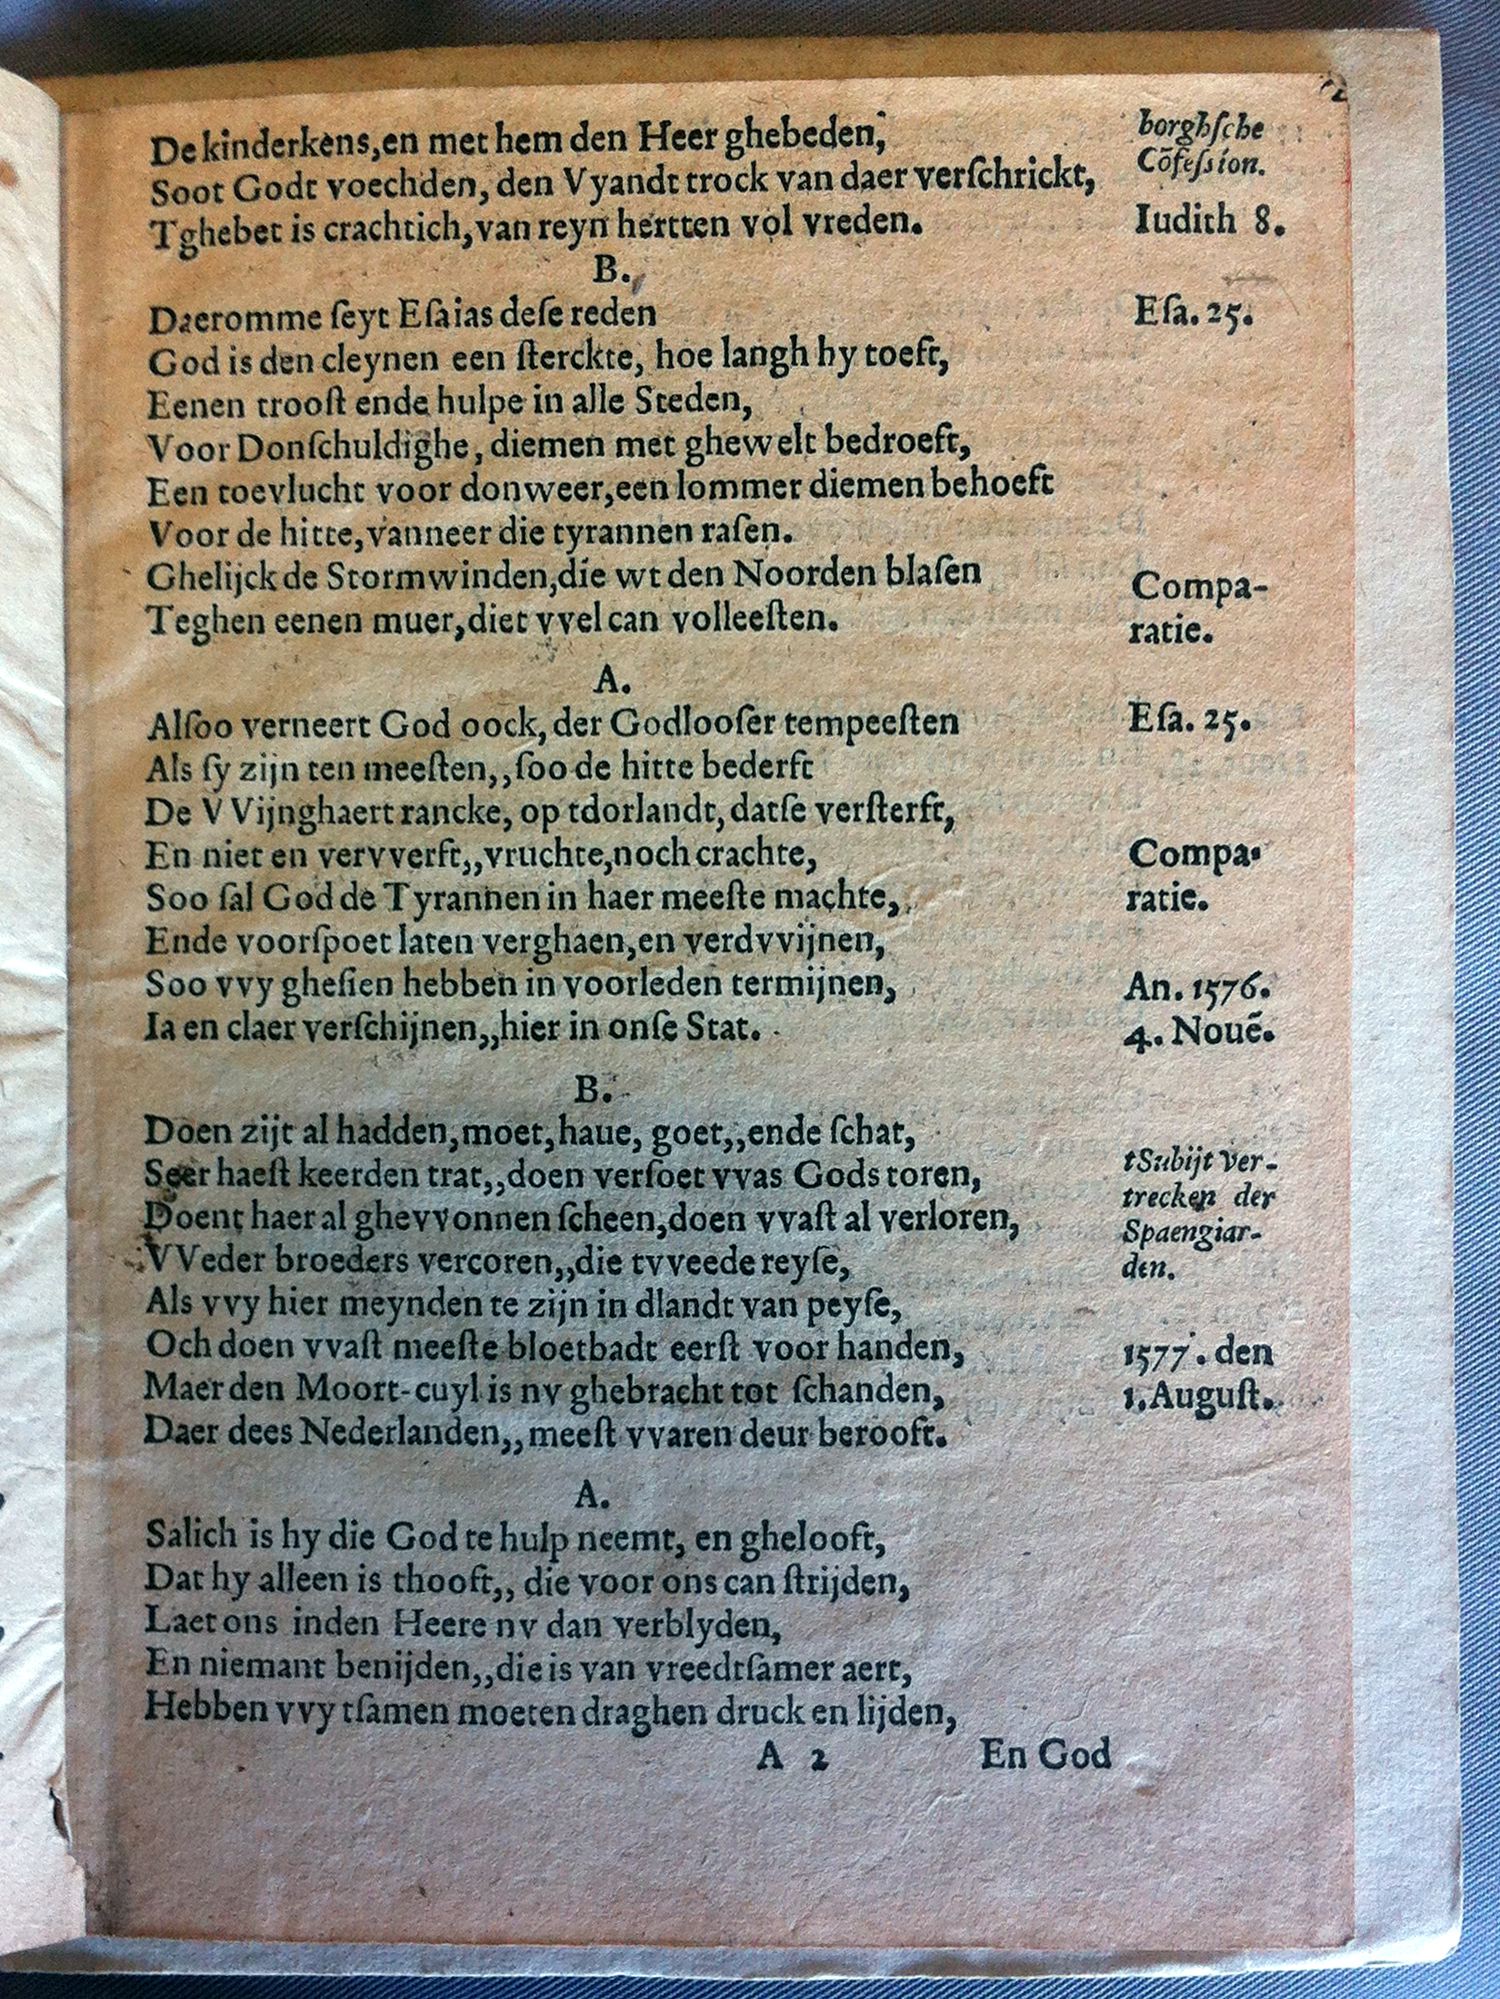 De kinderkens, en met hem den Heer ghebeden,
borghſche
Soot Godt voechden, den Vyandt trock van daer verſchrickt,
Cõfeſsion.
Tghebet is crachtich, van reyn hertten vol vreden.
Iudith 8.
B.
Daeromme ſeyt Eſaias deſe reden
Eſa. 25.
God is den cleynen een ſterckte, hoe langh hy toeft,
Eenen trooſt ende hulpe in alle Steden,
Voor Donſchuldighe, diemen met ghewelt bedroeft,
Een toevlucht voor donweer, een lommer diemen behoeft
Voor de hitte, vanneer die tyrannen raſen.
Ghelijck de Stormwinden, die wt den Noorden blaſen
Compa-
Teghen eenen muer, diet vvel can volleeſten.
ratie.
A.
Alſoo verneert God oock, der Godlooſer tempeeſten
Eſa. 25.
Als ſy zijn ten meeſten,, ſoo de hitte bederft
De VVijnghaert rancke, op tdorlandt, datſe verſterft,
En niet en vervverft,, vruchte, noch crachte,
Compa-
Soo ſal God de Tyrannen in haer meeſte machte,
ratie.
Ende voorſpoet laten verghaen, en verdvvijnen,
Soo vvy gheſien hebben in voorleden termijnen,
An. 1576.
Ia en claer verſchijnen,, hier in onſe Stat.
4. Nouẽ.
B.
Doen zijt al hadden, moet, haue, goet,, ende ſchat,
Seer haeſt keerden trat,, doen verſoet vvas Gods toren,
tSubijt Ver-
trecken der
Doent haer al ghevvonnen ſcheen, doen vvaſt al verloren,
Spaengiar-
VVeder broeders vercoren,, die tvveede reyſe,
den.
Als vvy hier meynden te zijn in dlandt van peyſe,
Och doen vvaſt meeſte bloetbadt eerſt voor handen,
1577. den
Maer den Moort-cuyl is nv ghebracht tot ſchanden,
1. Auguſt.
Daer dees Nederlanden,, meeſt vvaren deur berooft.
A.
Salich is hy die God te hulp neemt, en ghelooft,
Dat hy alleen is thooft,, die voor ons can ſtrijden,
Laet ons inden Heere nv dan verblyden,
En niemant benijden,, die is van vreedtſamer aert,
Hebben vvy tſamen moeten draghen druck en lijden,
A 2 En God